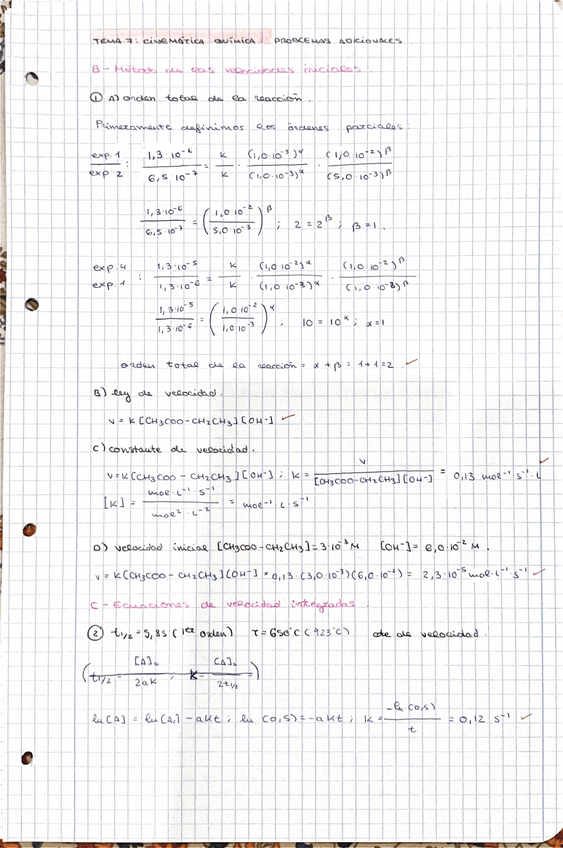 TEMA 7: CINEMÁTICA QUÍMICA PROBLEMAS ADICIONALES
B - Método de las velocidades iniciales
① A) orden total de la reacción.
Primeramente definimos los órdenes parciales:
exp. 1 / exp 2 : 1,3·10⁻⁶ / 6,5·10⁻⁷ = k/k · (1,0·10⁻³)^α / (1,0·10⁻³)^α · (1,0·10⁻²)^β / (5,0·10⁻³)^β
1,3·10⁻⁶ / 6,5·10⁻⁷ = (1,0·10⁻² / 5,0·10⁻³)^β ; 2 = 2^β ; β = 1.
exp. 4 / exp. 1 : 1,3·10⁻⁵ / 1,3·10⁻⁶ = k/k · (1,0·10⁻²)^α / (1,0·10⁻³)^α · (1,0·10⁻²)^β / (1,0·10⁻²)^β
1,3·10⁻⁵ / 1,3·10⁻⁶ = (1,0·10⁻² / 1,0·10⁻³)^α ; 10 = 10^α ; α = 1
orden total de la reacción = α + β = 1 + 1 = 2 ✓
B) ley de velocidad.
v = k [CH3COO-CH2CH3][OH-] ✓
C) constante de velocidad.
v = k [CH3COO-CH2CH3][OH-] ; k = v / [CH3COO-CH2CH3][OH-] = 0,13 mol⁻¹·s⁻¹·L ✓
[k] = mol·L⁻¹·s⁻¹ / mol²·L⁻² = mol⁻¹·L·s⁻¹
D) velocidad inicial [CH3COO-CH2CH3] = 3·10⁻³ M [OH-] = 6,0·10⁻² M.
v = k [CH3COO-CH2CH3][OH-] = 0,13·(3,0·10⁻³)(6,0·10⁻²) = 2,3·10⁻⁵ mol·L⁻¹·s⁻¹ ✓
C - Ecuaciones de velocidad integradas.
② t1/2 = 5,8s (1er orden) T = 650°C (923°C) cte de velocidad.
(t1/2 = [A]₀ / 2ak ; k = [A]₀ / 2t1/2)
ln[A] = ln[A₀] - akt ; ln(0,5) = -akt ; k = -ln(0,5) / t = 0,12 s⁻¹ ✓